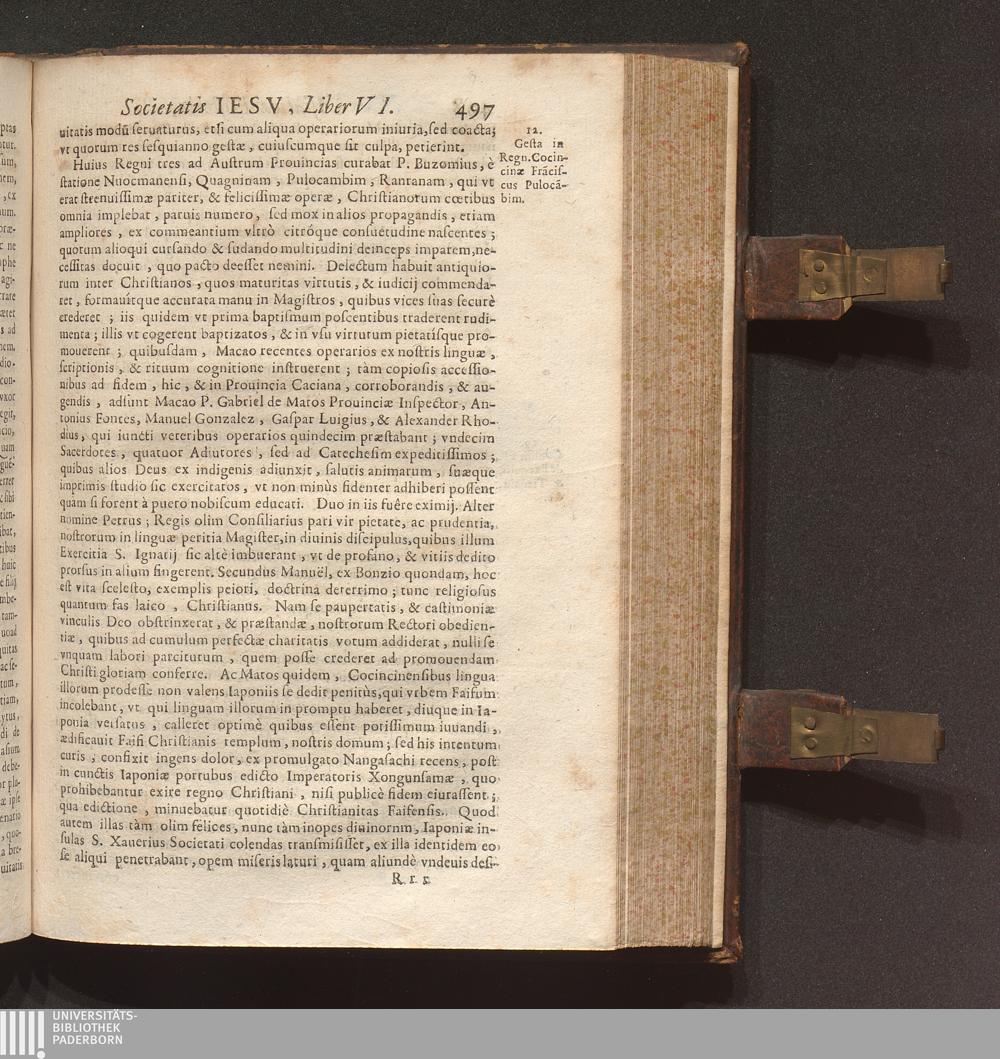 Societatis IESV, Liber VI. 497
uitatis modũ seruaturus, etsi cum aliqua operariorum iniuria, sed coacta;
vt quorum res sesquianno gestæ, cuiuscumque sit culpa, petierint.
Huius Regni tres ad Austrum Prouincias curabat P. Buzomius, è
statione Nuocmanensi, Quagninam, Pulocambim, Ranranam, qui vt
erat strenuissimæ pariter, & felicissimæ operæ, Christianorum cœtibus
omnia implebat, paruis numero, sed mox in alios propagandis, etiam
ampliores, ex commeantium vltrò citróque consuetudine nascentes;
quorum alioqui cursando & sudando multitudini deinceps imparem, ne-
cessitas docuit, quo pacto deesset nemini. Delectum habuit antiquio-
rum inter Christianos, quos maturitas virtutis, & iudicij commenda-
ret, formauitque accurata manu in Magistros, quibus vices suas securè
crederet; iis quidem vt prima baptismum poscentibus traderent rudi-
menta; illis vt cogerent baptizatos, & in vsu virtutum pietatisque pro-
mouerent; quibusdam, Macao recentes operarios ex nostris linguæ,
scriptionis, & rituum cognitione instruerent; tàm copiosis accessio-
nibus ad fidem, hic, & in Prouincia Caciana, corroborandis, & au-
gendis, adsunt Macao P. Gabriel de Matos Prouinciæ Inspector, An-
tonius Fontes, Manuel Gonzalez, Gaspar Luigius, & Alexander Rho-
dius, qui iuncti veteribus operarios quindecim præstabant; vndecim
Sacerdotes, quatuor Adiutores, sed ad Catechesim expeditissimos;
quibus alios Deus ex indigenis adiunxit, salutis animarum, suæque
imprimis studio sic exercitatos, vt non minùs fidenter adhiberi possent
quam si forent à puero nobiscum educati. Duo in iis fuêre eximij. Alter
nomine Petrus; Regis olim Consiliarius pari vir pietate, ac prudentia,
nostrorum in linguæ peritia Magister, in diuinis discipulus, quibus illum
Exercitia S. Ignatij sic altè imbuerant, vt de profano, & vitiis dedito
prorsus in alium fingerent. Secundus Manuël, ex Bonzio quondam, hoc
est vita scelesto, exemplis peiori, doctrina deterrimo; tunc religiosus
quantum fas laico, Christianus. Nam se paupertatis, & castimoniæ
vinculis Deo obstrinxerat, & præstandæ, nostrorum Rectori obedien-
tiæ, quibus ad cumulum perfectæ charitatis votum addiderat, nulli se
vnquam labori parciturum, quem posse crederet ad promouendam
Christi gloriam conferre. Ac Matos quidem, Cocincinensibus lingua
illorum prodesse non valens Iaponiis se dedit penitùs, qui vrbem Faifum
incolebant, vt qui linguam illorum in promptu haberet, diuque in Ia-
ponia versatus, calleret optimè quibus essent potissimum iuuandi,
ædificauit Faifi Christianis templum, nostris domum; sed his intentum
curis, confixit ingens dolor, ex promulgato Nangasachi recens, post
in cunctis Iaponiæ portubus edicto Imperatoris Xongunsamæ, quo
prohibebantur exire regno Christiani, nisi publicè fidem eiurassent;
qua edictione, minuebatur quotidiè Christianitas Faifensis. Quod
autem illas tàm olim felices, nunc tàm inopes diuinorum, Iaponiæ in-
sulas S. Xauerius Societati colendas transmisisset, ex illa identidem eo
se aliqui penetrabant, opem miseris laturi, quam aliundè vndeuis desi-
R r r
12.
Gesta in
Regn. Cocin-
cinæ Frãcis-
cus Pulocã-
bim.
UNIVERSITÄTS-
BIBLIOTHEK
PADERBORN